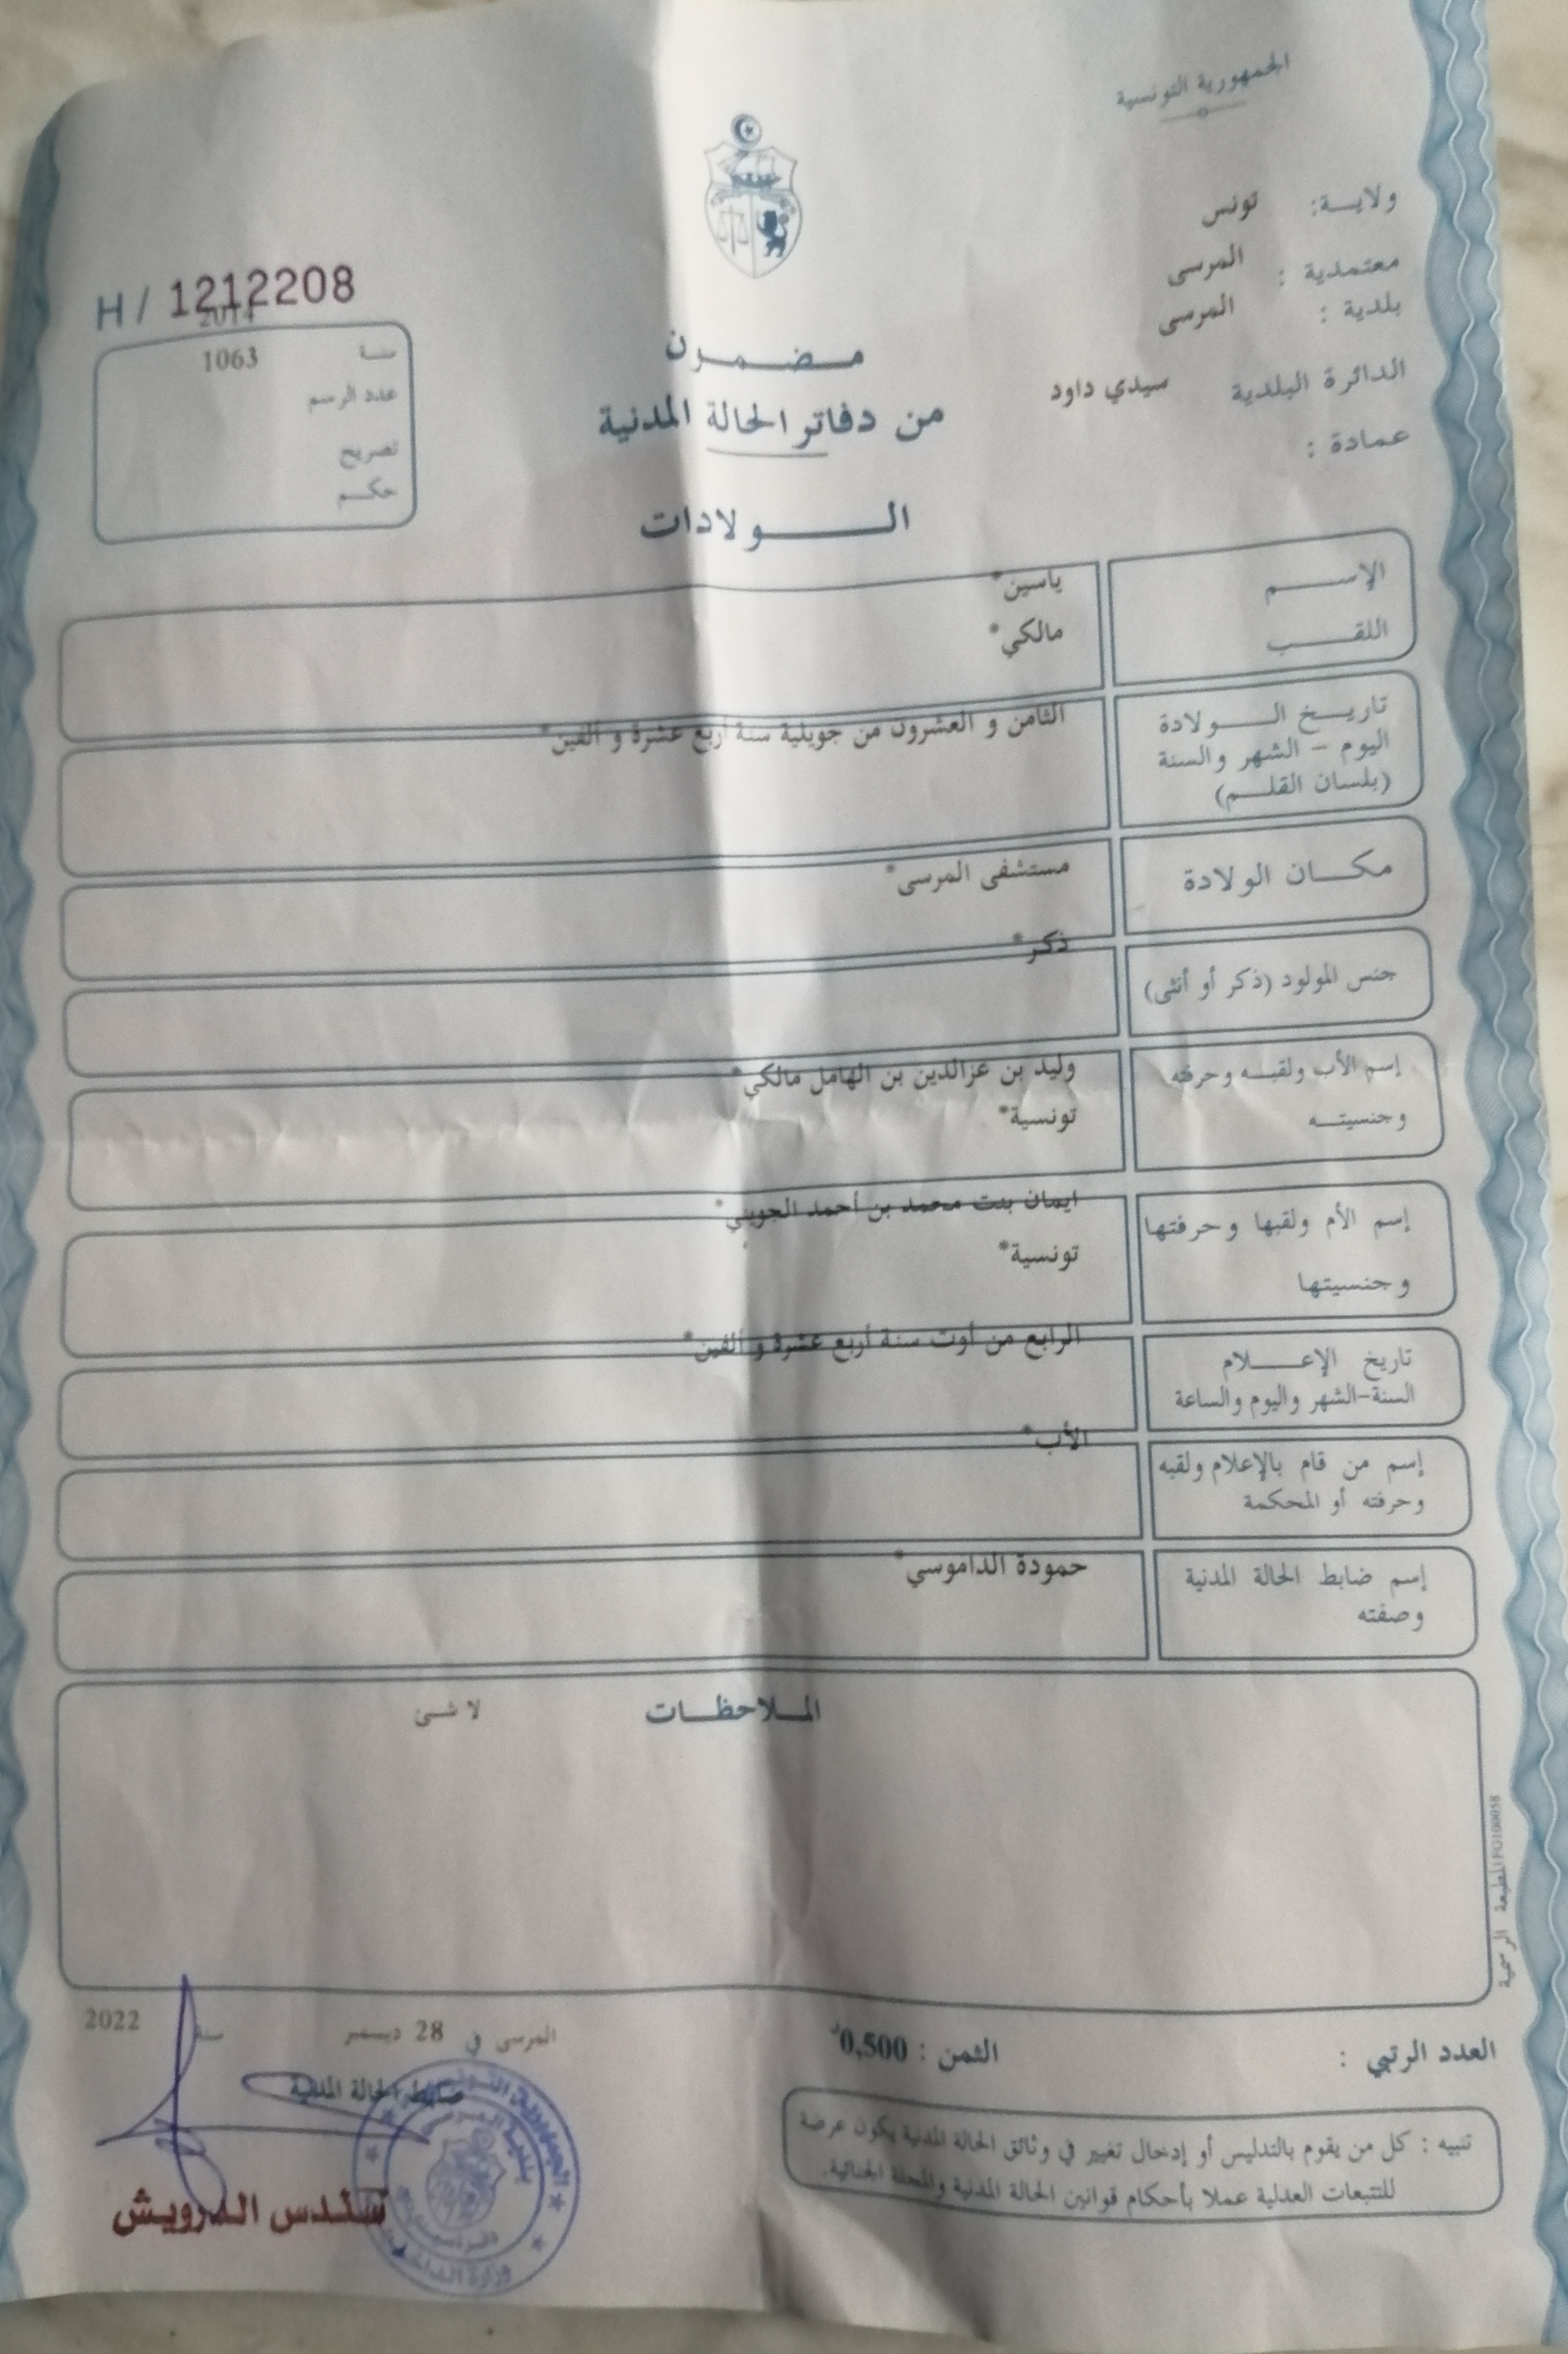 الجمهورية التونسية
ولايـــة: تونس
معتمدية : المرسى
بلدية : المرسى
الدائرة البلدية سيدي داود
عمادة :
H / 1212208
2014
سنـة 1063
عدد الرسم
تصريح
حكـــم
مــضــمــون
من دفاتر الحالة المدنية
الــــولادات
الإســـــم ياسين*
اللقـــــب مالكي*
تاريــخ الـــولادة الثامن و العشرون من جويلية سنة أربع عشرة و ألفين*
اليوم – الشهر والسنة
(بلسان القلـــم)
مكـــان الولادة مستشفى المرسى*
جنس المولود (ذكر أو أنثى) ذكر*
إسم الأب ولقبــه وحرفته وليد بن عزالدين بن الهامل مالكي*
وجنسيتــه تونسية*
إسم الأم ولقبها وحرفتها ايمان بنت محمد بن أحمد الجويني*
وجنسيتها تونسية*
تاريخ الإعـــلام الرابع من أوت سنة أربع عشرة و ألفين*
السنة-الشهر واليوم والساعة
إسم من قام بالإعلام ولقبه الأب*
وحرفته أو المحكمة
إسم ضابط الحالة المدنية حمودة الداموسي*
وصفته
المــلاحظــات لا شئ
المطبعة الرسمية
العدد الرتبي :
الثمن : 0,500د
المرسى في 28 ديسمبر سنة 2022
ضابط الحالة المدنية
سندس الدرويش
تنبيه : كل من يقوم بالتدليس أو إدخال تغيير في وثائق الحالة المدنية يكون عرضة
للتتبعات العدلية عملا بأحكام قوانين الحالة المدنية والمجلة الجنائية.